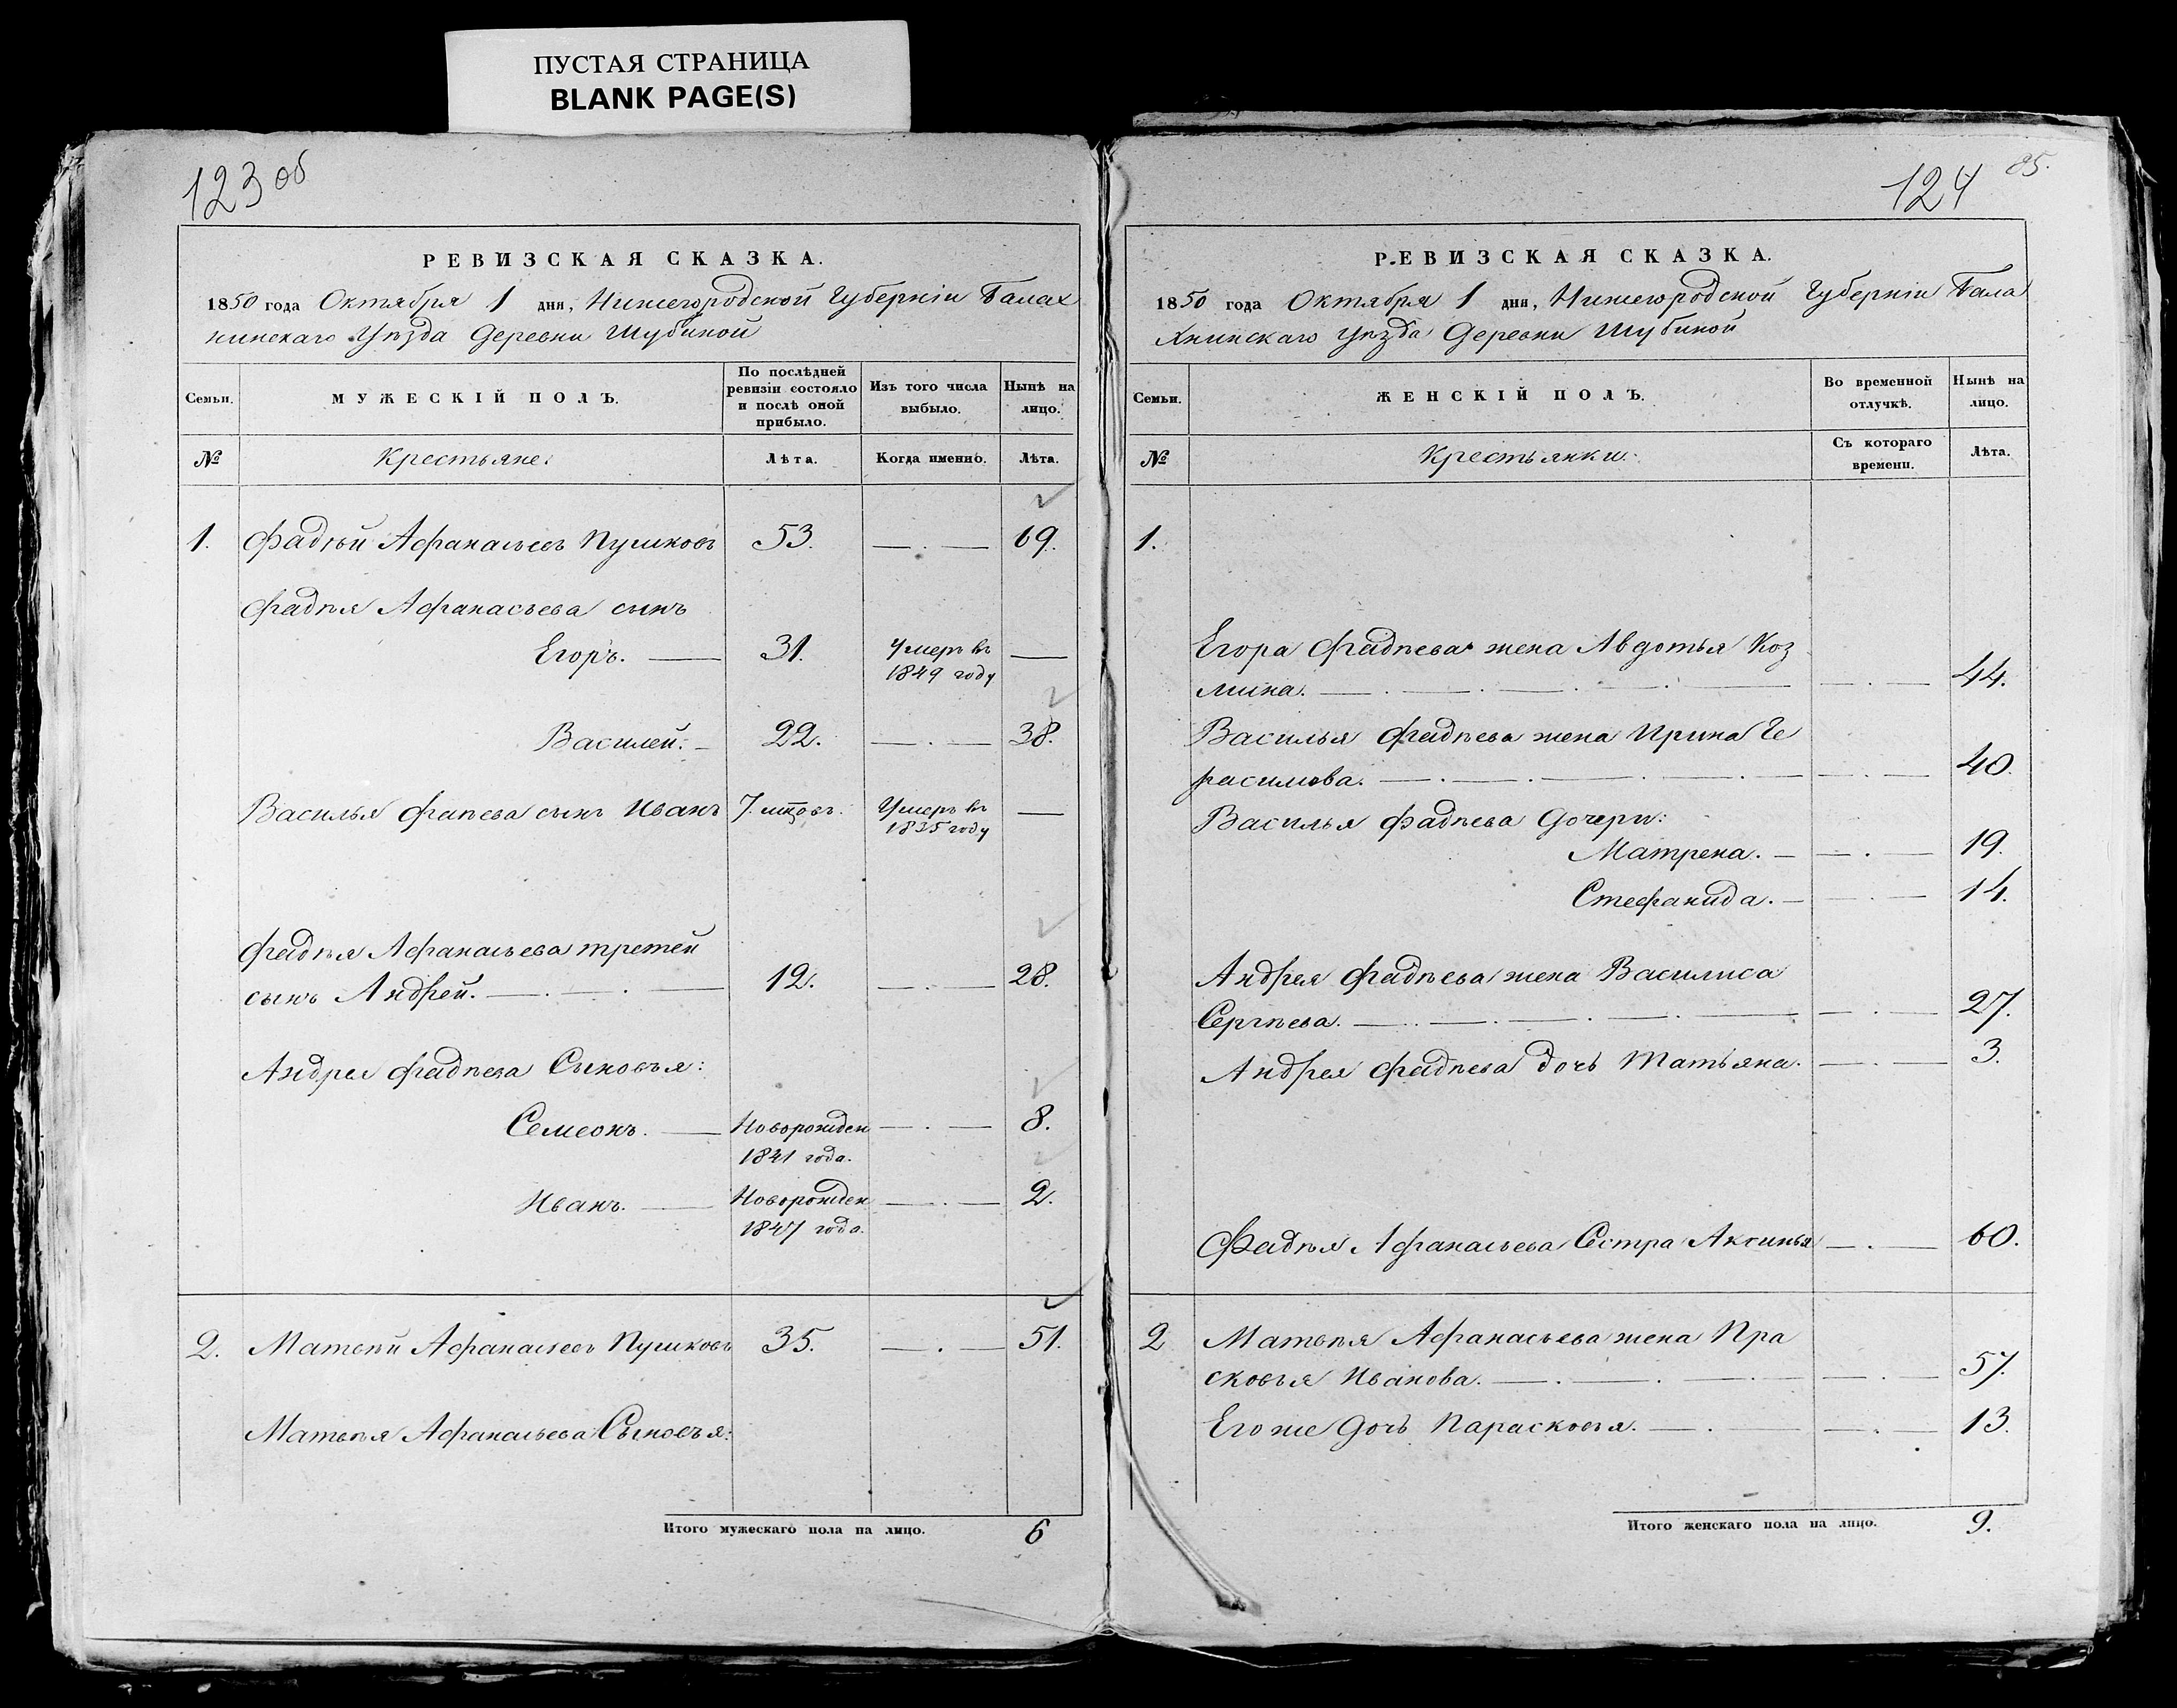 ПУСТАЯ СТРАНИЦА
BLANK PAGE(S)
123 об
РЕВИЗСКАЯ СКАЗКА.
1850 года Октября 1 дня, Нижегородской Губерніи Балах
нинскаго Уѣзда Деревни Шубиной
Семьи.
МУЖЕСКІЙ ПОЛЪ.
По послѣдней ревизіи состояло и послѣ оной прибыло.
Изъ того числа выбыло.
Нынѣ на лицо.
№
Крестьяне:
Лѣта.
Когда именно.
Лѣта.
1. Фадѣй Афанасьевъ Пушковъ 53. — . — 69.
Фадѣя Афанасьева сынъ
Егоръ. — 31. Умеръ въ —
1849 году
Василей. – 22. — . — 38.
Василья Фапева сынъ Иванъ 7. мцовъ. Умеръ въ —
1835 году
Фадѣя Афанасьева третей
сынъ Андрей. — . — . — 12. — . — 28.
Андрея Фадѣева Сыновья:
Семеонъ. — Новорожден — . — 8.
1841 года.
Иванъ. — Новорожден — . — 2.
1847 года.
2. Матвѣй Афанасьевъ Пушковъ 35. — . — 51.
Матвѣя Афанасьева Сыновья:
Итого мужескаго пола на лицо. 6
124 85.
РЕВИЗСКАЯ СКАЗКА.
1850 года Октября 1 дня, Нижегородской Губерніи Бала
хнинскаго Уѣзда Деревни Шубиной
Семьи.
ЖЕНСКІЙ ПОЛЪ.
Во временной отлучкѣ.
Нынѣ на лицо.
№
Крестьянки.
Съ котораго времени.
Лѣта.
1.
Егора Фадѣева жена Авдотья Коз
мина. — . — . — . — . — — . — 44.
Василья Фадѣева жена Ирина Ге
расимова. — . — . — . — . — — . — 40.
Василья Фадѣева Дочери:
Матрена. – — . — 19.
Стефанида. – — . — 14.
Андрея Фадѣева жена Василиса
Сергѣева. — . — . — . — . — — . — 27.
Андрея Фадѣева Дочь Татьяна. — . — 3.
Фадѣя Афанасьева Сестра Аксинья — . — 60.
2 Матвѣя Афанасьева жена Пра
сковья Иванова. — . — . — . — — . — 57.
Его же Дочь Парасковья. — . — — . — 13.
Итого женскаго пола на лицо. 9.